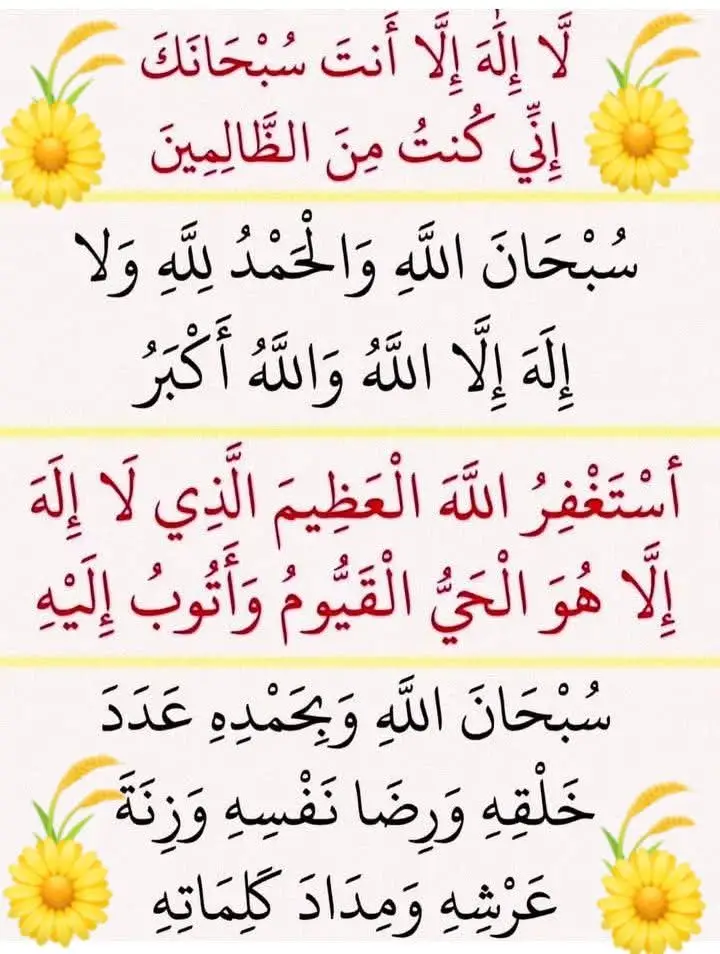 لَّا إِلَٰهَ إِلَّا أَنتَ سُبْحَانَكَ
إِنِّي كُنتُ مِنَ الظَّالِمِينَ
سُبْحَانَ اللَّهِ وَالْحَمْدُ لِلَّهِ وَلا
إِلَهَ إِلَّا اللَّهُ وَاللَّهُ أَكْبَرُ
أسْتَغْفِرُ اللَّهَ الْعَظِيمَ الَّذِي لَا إِلَهَ
إِلَّا هُوَ الْحَيُّ الْقَيُّومُ وَأَتُوبُ إِلَيْهِ
سُبْحَانَ اللَّهِ وَبِحَمْدِهِ عَدَدَ
خَلْقِهِ وَرِضَا نَفْسِهِ وَزِنَةَ
عَرْشِهِ وَمِدَادَ كَلِمَاتِهِ